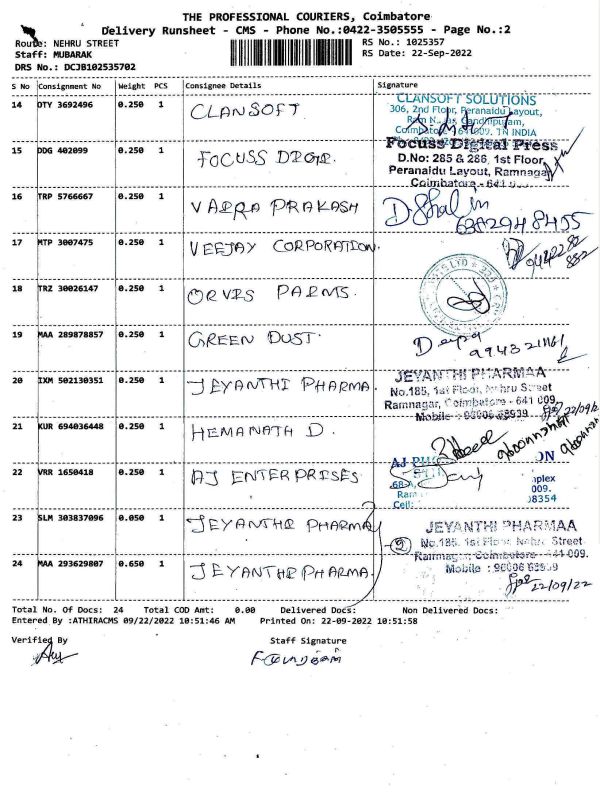 THE PROFESSIONAL COURIERS, Coimbatore
Delivery Runsheet - CMS - Phone No.:0422-3505555 - Page No.:2
Route: NEHRU STREET
RS No.: 1025357
Staff: MUBARAK
RS Date: 22-Sep-2022
DRS No.: DCJB102535702
S No Consignment No Weight PCS Consignee Details Signature
14 DTY 3692496 0.250 1 CLANSOFT
CLANSOFT SOLUTIONS
306, 2nd Floor, Peranaidu Layout,
15 DDG 402099 0.250 1 FOCUSS DIGI.
Focuss Digital Press
D.No: 285 & 286, 1st Floor,
Peranaidu Layout, Ramnagar
Coimbatore - 641
16 TRP 5766667 0.250 1 VAIRA PRAKASH
6382948455
17 MTP 3007475 0.250 1 VEEJAY CORPORATION.
18 TRZ 30026147 0.250 1 ORVIS PALMS.
19 MAA 289878857 0.250 1 GREEN DUST.
Deepa
20 IXM 502130351 0.250 1 JEYANTHI PHARMA.
JEYANTHI PHARMAA
No.185, 1st Floor, Nehru Street
Ramnagar, Coimbatore - 641 009,
Mobile : 98606 63939
22/09/2
21 KUR 694036448 0.250 1 HEMANATH D.
22 VRR 1650418 0.250 1 AJ ENTERPRISES
23 SLM 303837096 0.050 1 JEYANTHI PHARMA
JEYANTHI PHARMAA
No.185, 1st Floor, Nehru Street
Ramnagar, Coimbatore - 641 009.
24 MAA 293629807 0.650 1 JEYANTHI PHARMA.
22/09/22
Total No. Of Docs: 24 Total COD Amt: 0.00 Delivered Docs: Non Delivered Docs:
Entered By :ATHIRACMS 09/22/2022 10:51:46 AM Printed On: 22-09-2022 10:51:58
Verified By Staff Signature